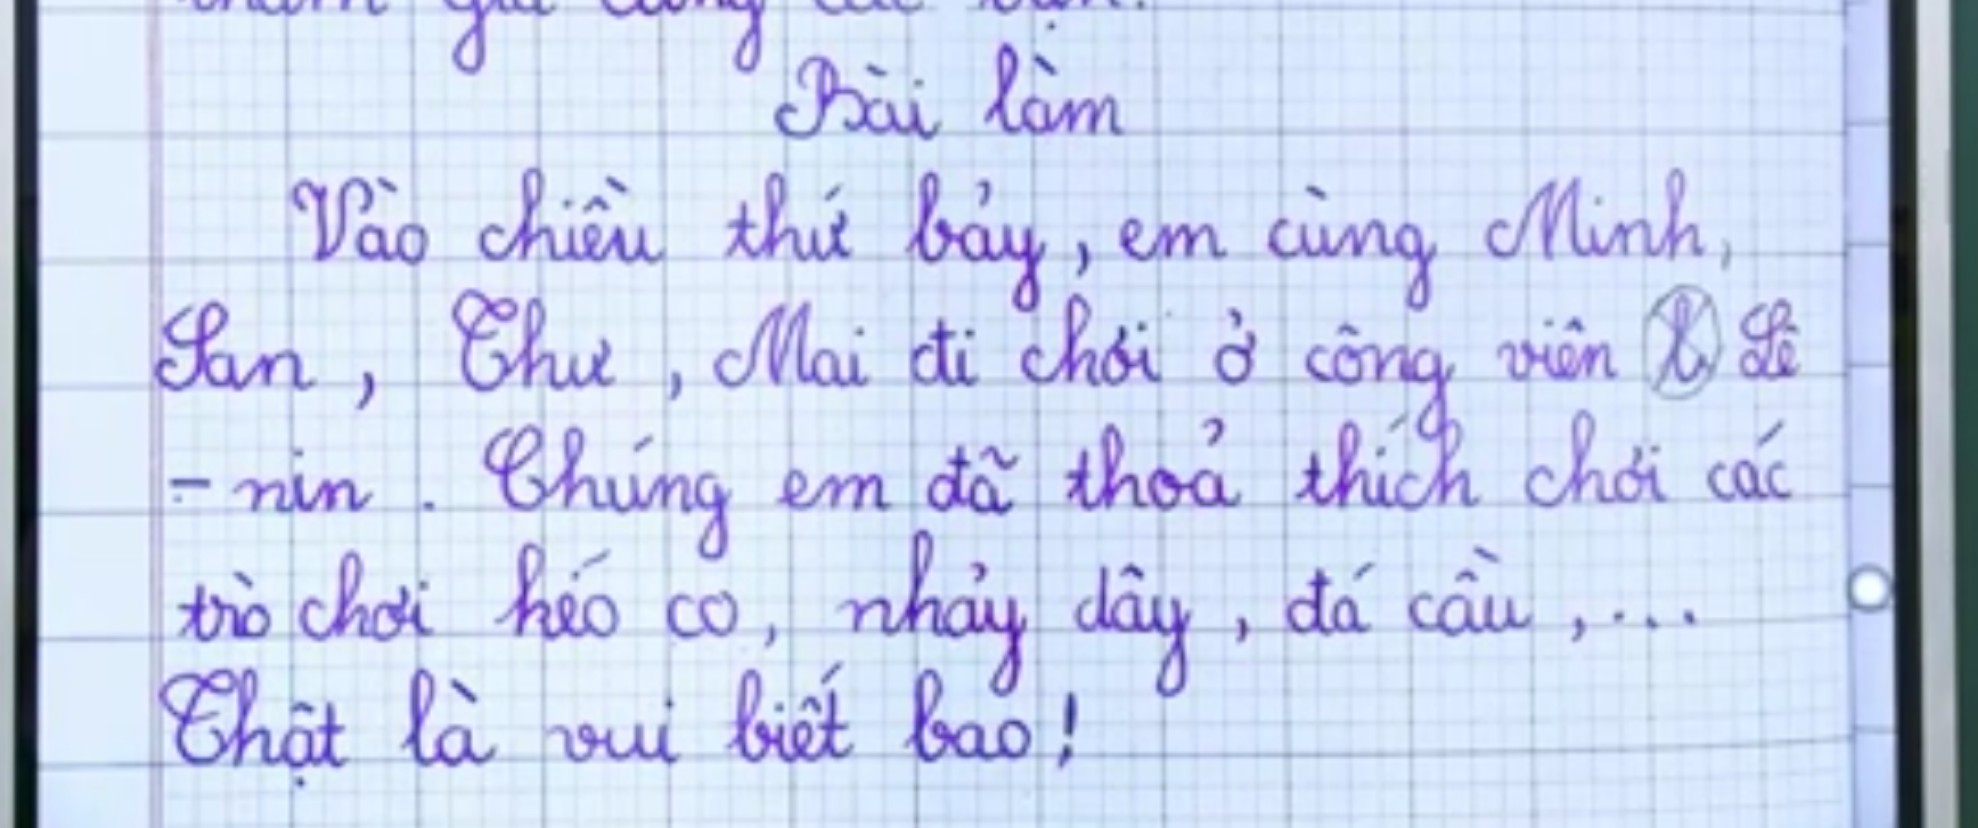 tham gia cùng các bạn.
Bài làm
Vào chiều thứ bảy, em cùng Minh,
San, Thư, Mai đi chơi ở công viên Lê
- nin. Chúng em đã thoả thích chơi các
trò chơi kéo co, nhảy dây, đá cầu,...
Thật là vui biết bao!